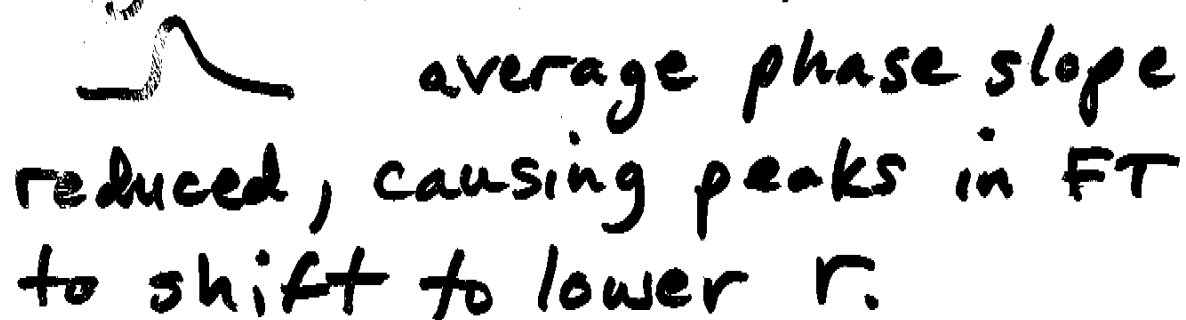 average phase slope
reduced, causing peaks in FT
to shift to lower r.